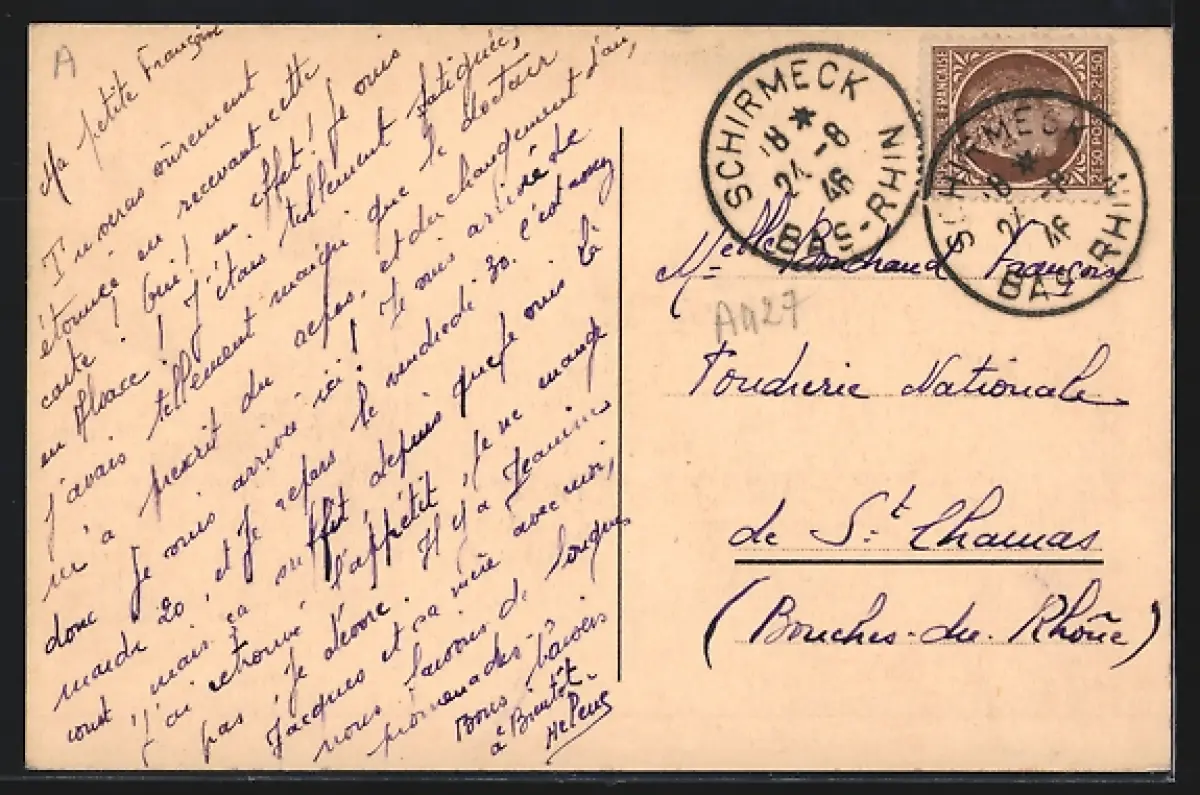 A
Ma petite Françoise
Tu seras sûrement
étonnée en recevant cette
carte ! Oui ! en effet ! je suis
en Alsace ! J'étais tellement fatiguée,
j'avais tellement maigri que le docteur
m'a prescrit du repos, et du changement d'air,
donc je suis arrivée ici ! Je suis arrivée le
mardi 20, et je repars le vendredi 30. c'est assez
court mais ça suffit, depuis que je suis là
j'ai retrouvé l'appétit, je ne mange
pas, je dévore. Il y a Jeanine
Jacques et sa mère avec moi,
nous faisons de longues
promenades.
Bons baisers
à Bientôt
Helene
SCHIRMECK
18 * -8
24 46
BAS-RHIN
FRANÇAISE
2F.50 POSTES 2F.50
SCHIRMECK
18 * -8
24 46
BAS-RHIN
Melle Bouchaud Françoise
A427
Poudrerie Nationale
de St. Chamas
(Bouches-du-Rhône)